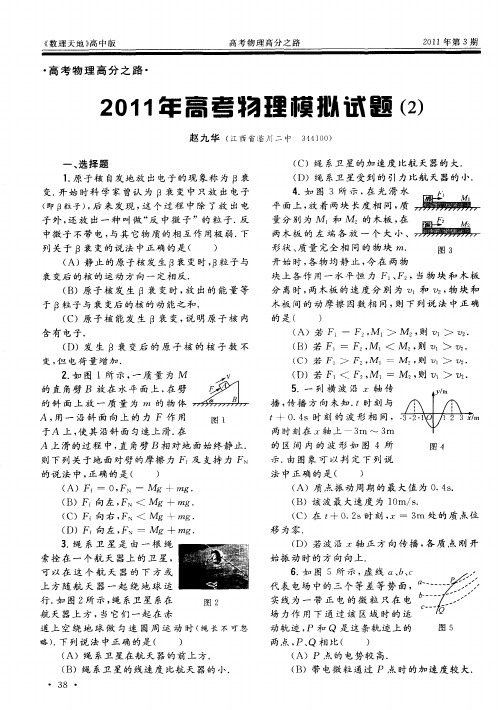 《数理天地》高中版
高考物理高分之路
2011年第3期
·高考物理高分之路·
2011年高考物理模拟试题(2)
赵九华 (江西省临川二中 344100)
一、选择题
1.原子核自发地放出电子的现象称为β衰
变.开始时科学家曾认为β衰变中只放出电子
(即β粒子),后来发现,这个过程中除了放出电
子外,还放出一种叫做“反中微子”的粒子.反
中微子不带电,与其它物质的相互作用极弱.下
列关于β衰变的说法中正确的是( )
(A)静止的原子核发生β衰变时,β粒子与
衰变后的核的运动方向一定相反.
(B)原子核发生β衰变时,放出的能量等
于β粒子与衰变后的核的动能之和.
(C)原子核能发生β衰变,说明原子核内
含有电子.
(D)发生β衰变后的原子核的核子数不
变,但电荷量增加.
2.如图1所示,一质量为M
的直角劈B放在水平面上,在劈
的斜面上放一质量为m的物体
A,用一沿斜面向上的力F作用
于A上,使其沿斜面匀速上滑.在
F
A
B
图1
A上滑的过程中,直角劈B相对地面始终静止.
则下列关于地面对劈的摩擦力Ff及支持力FN
的说法中,正确的是( )
(A)Ff=0,FN=Mg+mg.
(B)Ff向左,FN<Mg+mg.
(C)Ff向右,FN<Mg+mg.
(D)Ff向左,FN=Mg+mg.
3.绳系卫星是由一根绳
索拴在一个航天器上的卫星,
可以在这个航天器的下方或
上方随航天器一起绕地球运
行.如图2所示,绳系卫星系在
航天器上方,当它们一起在赤
图2
道上空绕地球做匀速圆周运动时(绳长不可忽
略).下列说法中正确的是( )
(A)绳系卫星在航天器的前上方.
(B)绳系卫星的线速度比航天器的小.
(C)绳系卫星的加速度比航天器的大.
(D)绳系卫星受到的引力比航天器的小.
4.如图3所示,在光滑水
平面上,放着两块长度相同,质
量分别为M1和M2的木板,在
两木板的左端各放一个大小、
形状、质量完全相同的物块m.
F1
M1
F2
M2
图3
开始时,各物均静止,今在两物
块上各作用一水平恒力F1、F2,当物块和木板
分离时,两木板的速度分别为v1和v2,物块和
木板间的动摩擦因数相同,则下列说法中正确
的是( )
(A)若F1=F2,M1>M2,则v1>v2.
(B)若F1=F2,M1<M2,则v1>v2.
(C)若F1>F2,M1=M2,则v1>v2.
(D)若F1<F2,M1=M2,则v1>v2.
5.一列横波沿x轴传
播,传播方向未知.t时刻与
t+0.4s时刻的波形相同,
两时刻在x轴上-3m~3m
的区间内的波形如图4所
y/m
-3 -2 -1 O 1 2 3 x/m
图4
示.由图象可以判定下列说
法中正确的是( )
(A)质点振动周期的最大值为0.4s.
(B)该波最大速度为10m/s.
(C)在t+0.2s时刻,x=3m处的质点位
移为零.
(D)若波沿x轴正方向传播,各质点刚开
始振动时的方向向上.
6.如图5所示,虚线a、b、c
代表电场中的三个等差等势面,
实线为一带正电的微粒只在电
场力作用下通过该区域时的运
动轨迹,P和Q是这条轨迹上的
a
b
c
P
Q
图5
两点,P、Q相比( )
(A)P点的电势较高.
(B)带电微粒通过P点时的加速度较大.
·38·